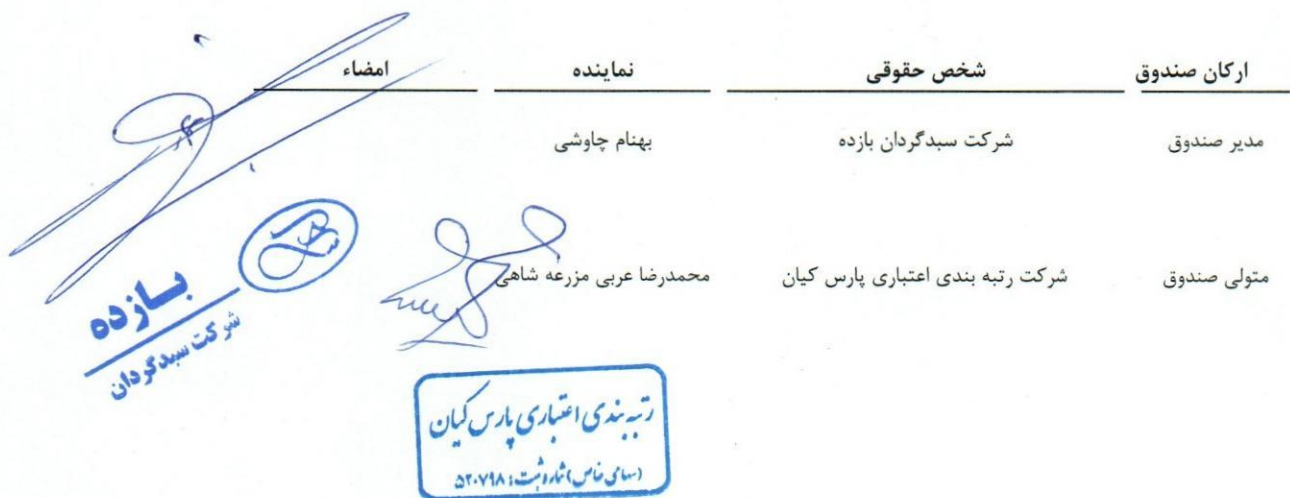 ارکان صندوق شخص حقوقی نماینده امضاء
مدیر صندوق شرکت سبدگردان بازده بهنام چاوشی
متولی صندوق شرکت رتبه بندی اعتباری پارس کیان محمدرضا عربی مزرعه شاهی
بازده
شرکت سبدگردان
رتبه بندی اعتباری پارس کیان
(سهامی خاص) شماره ثبت: ۵۲۰۷۹۸